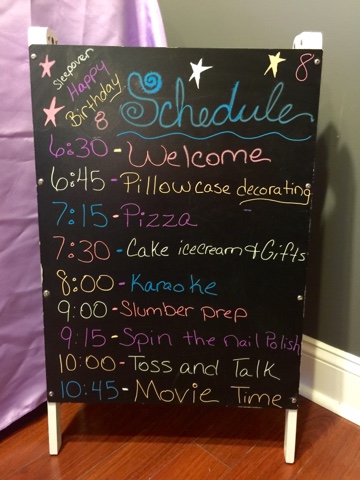 Sleepover
Happy
Birthday
8
8
Schedule
6:30 - Welcome
6:45 - Pillowcase decorating
7:15 - Pizza
7:30 - Cake icecream & Gifts
8:00 - Karaoke
9:00 - Slumber prep
9:15 - Spin the nail Polish
10:00 - Toss and Talk
10:45 - Movie Time